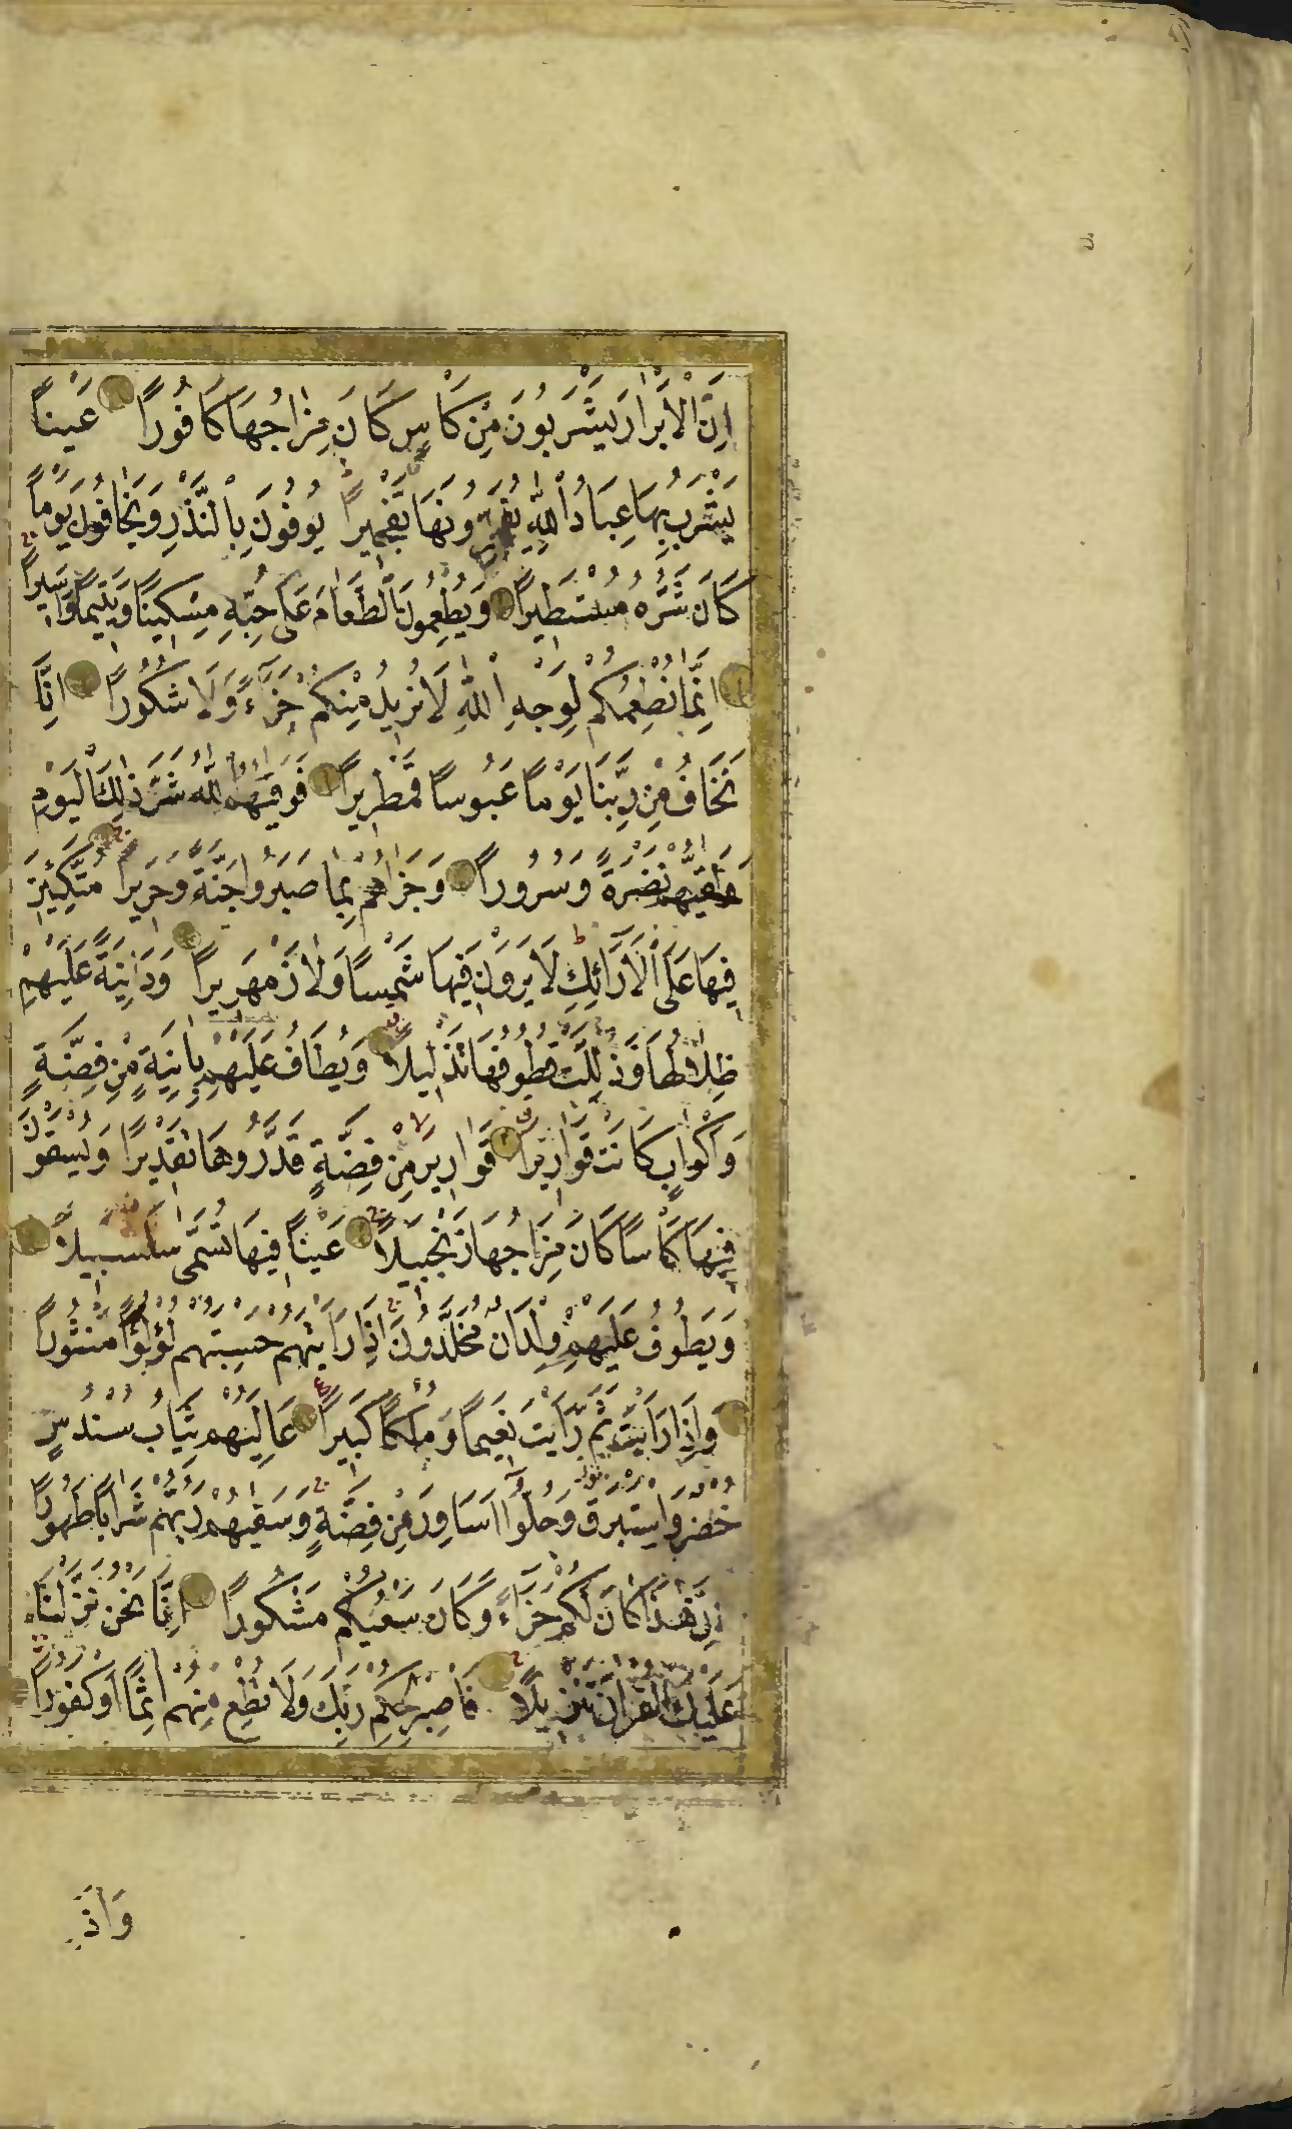 اِنَّ الْاَبْرَارَ يَشْرَبُونَ مِنْ كَاْسٍ كَانَ مِزَاجُهَا كَافُورًا عَيْنًا
يَشْرَبُ بِهَا عِبَادُ اللّٰهِ يُفَجِّرُونَهَا تَفْجِيرًا يُوفُونَ بِالنَّذْرِ وَيَخَافُونَ يَوْمًا
كَانَ شَرُّهُ مُسْتَطِيرًا وَيُطْعِمُونَ الطَّعَامَ عَلٰى حُبِّهِ مِسْكِينًا وَيَتِيمًا وَاَسِيرًا
اِنَّمَا نُطْعِمُكُمْ لِوَجْهِ اللّٰهِ لَا نُرِيدُ مِنْكُمْ جَزَآءً وَلَا شُكُورًا اِنَّا
نَخَافُ مِنْ رَبِّنَا يَوْمًا عَبُوسًا قَمْطَرِيرًا فَوَقٰيهُمُ اللّٰهُ شَرَّ ذٰلِكَ الْيَوْمِ
وَلَقّٰيهُمْ نَضْرَةً وَسُرُورًا وَجَزٰاهُمْ بِمَا صَبَرُوا جَنَّةً وَحَرِيرًا مُتَّكِئِينَ
فِيهَا عَلَى الْاَرَآئِكِ لَا يَرَوْنَ فِيهَا شَمْسًا وَلَا زَمْهَرِيرًا وَدَانِيَةً عَلَيْهِمْ
ظِلَالُهَا وَذُلِّلَتْ قُطُوفُهَا تَذْلِيلًا وَيُطَافُ عَلَيْهِمْ بِاٰنِيَةٍ مِنْ فِضَّةٍ
وَاَكْوَابٍ كَانَتْ قَوَارِيرَا قَوَارِيرَ مِنْ فِضَّةٍ قَدَّرُوهَا تَقْدِيرًا وَيُسْقَوْنَ
فِيهَا كَاْسًا كَانَ مِزَاجُهَا زَنْجَبِيلًا عَيْنًا فِيهَا تُسَمّٰى سَلْسَبِيلًا
وَيَطُوفُ عَلَيْهِمْ وِلْدَانٌ مُخَلَّدُونَ اِذَا رَاَيْتَهُمْ حَسِبْتَهُمْ لُؤْلُؤًا مَنْثُورًا
وَاِذَا رَاَيْتَ ثَمَّ رَاَيْتَ نَعِيمًا وَمُلْكًا كَبِيرًا عَالِيَهُمْ ثِيَابُ سُنْدُسٍ
خُضْرٌ وَاِسْتَبْرَقٌ وَحُلُّوٓا اَسَاوِرَ مِنْ فِضَّةٍ وَسَقٰيهُمْ رَبُّهُمْ شَرَابًا طَهُورًا
اِنَّ هٰذَا كَانَ لَكُمْ جَزَآءً وَكَانَ سَعْيُكُمْ مَشْكُورًا اِنَّا نَحْنُ نَزَّلْنَا
عَلَيْكَ الْقُرْاٰنَ تَنْزِيلًا فَاصْبِرْ لِحُكْمِ رَبِّكَ وَلَا تُطِعْ مِنْهُمْ اٰثِمًا اَوْ كَفُورًا
وَاذْ